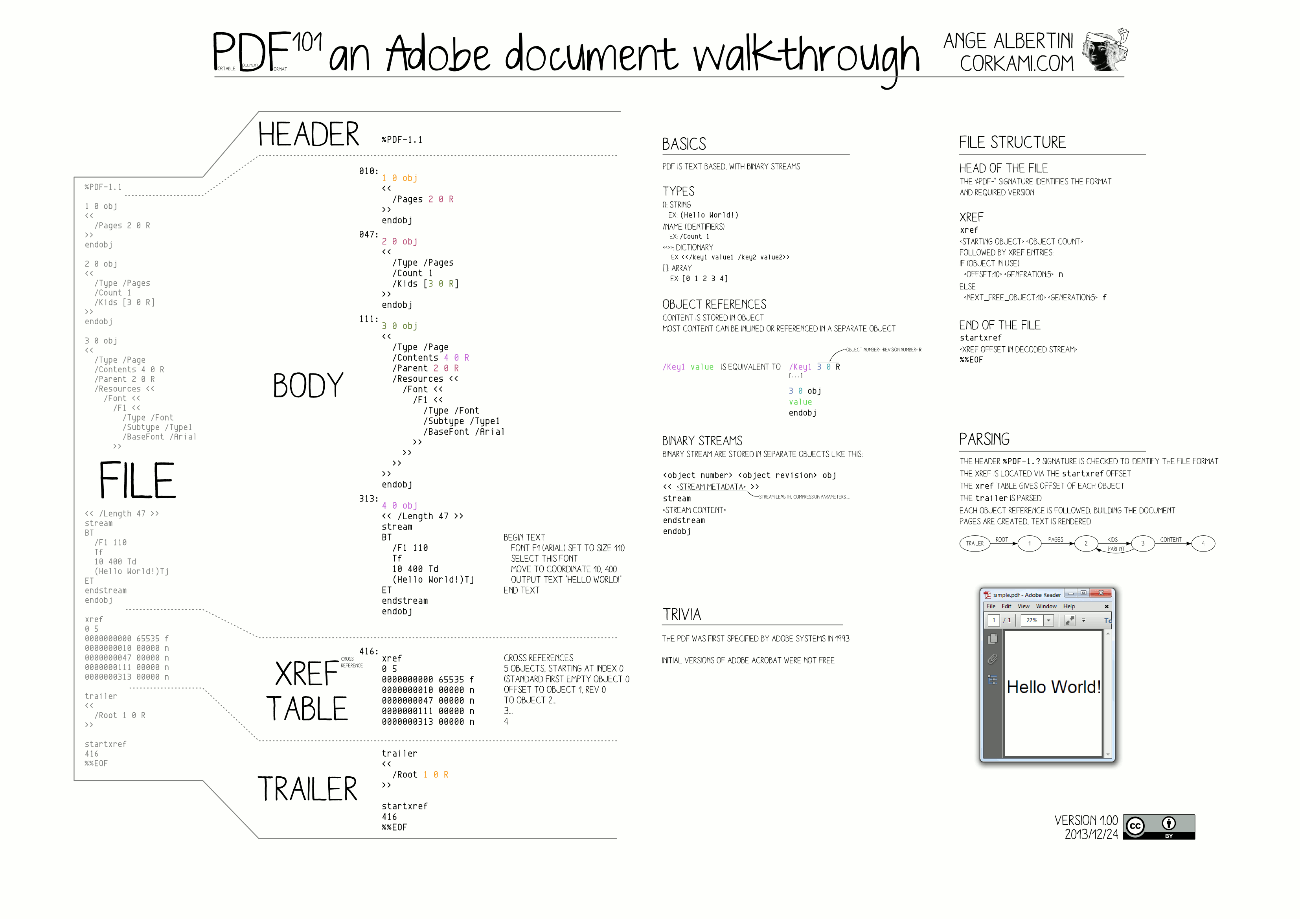 PDF101 an Adobe document walkthrough
PORTABLE DOCUMENT FORMAT
ANGE ALBERTINI
CORKAMI.COM
%PDF-1.1
1 0 obj
<<
/Pages 2 0 R
>>
endobj
2 0 obj
<<
/Type /Pages
/Count 1
/Kids [3 0 R]
>>
endobj
3 0 obj
<<
/Type /Page
/Contents 4 0 R
/Parent 2 0 R
/Resources <<
/Font <<
/F1 <<
/Type /Font
/Subtype /Type1
/BaseFont /Arial
>>
FILE
<< /Length 47 >>
stream
BT
/F1 110
Tf
10 400 Td
(Hello World!)Tj
ET
endstream
endobj
xref
0 5
0000000000 65535 f
0000000010 00000 n
0000000047 00000 n
0000000111 00000 n
0000000313 00000 n
trailer
<<
/Root 1 0 R
>>
startxref
416
%%EOF
HEADER
%PDF-1.1
BODY
010:
1 0 obj
<<
/Pages 2 0 R
>>
endobj
047:
2 0 obj
<<
/Type /Pages
/Count 1
/Kids [3 0 R]
>>
endobj
111:
3 0 obj
<<
/Type /Page
/Contents 4 0 R
/Parent 2 0 R
/Resources <<
/Font <<
/F1 <<
/Type /Font
/Subtype /Type1
/BaseFont /Arial
>>
>>
>>
>>
endobj
313:
4 0 obj
<< /Length 47 >>
stream
BT BEGIN TEXT
/F1 110 FONT F1 (ARIAL) SET TO SIZE 110
Tf SELECT THIS FONT
10 400 Td MOVE TO COORDINATE 10, 400
(Hello World!)Tj OUTPUT TEXT "HELLO WORLD!"
ET END TEXT
endstream
endobj
XREF
CROSS
REFERENCE
TABLE
416:
xref CROSS REFERENCES
0 5 5 OBJECTS, STARTING AT INDEX 0
0000000000 65535 f (STANDARD FIRST EMPTY OBJECT 0)
0000000010 00000 n OFFSET TO OBJECT 1, REV 0
0000000047 00000 n TO OBJECT 2...
0000000111 00000 n 3...
0000000313 00000 n 4
TRAILER
trailer
<<
/Root 1 0 R
>>
startxref
416
%%EOF
BASICS
PDF IS TEXT BASED, WITH BINARY STREAMS
TYPES
() STRING
EX (Hello World!)
/NAME (IDENTIFIERS)
EX /Count 1
<<>> DICTIONARY
EX <</Key1 value1 /key2 value2>>
[] ARRAY
EX [0 1 2 3 4]
OBJECT REFERENCES
CONTENT IS STORED IN OBJECT
MOST CONTENT CAN BE INLINED OR REFERENCED IN A SEPARATE OBJECT
<OBJECT NUMBER> <REVISION NUMBER> R
/Key1 value IS EQUIVALENT TO /Key1 3 0 R
[...]
3 0 obj
value
endobj
BINARY STREAMS
BINARY STREAM ARE STORED IN SEPARATE OBJECTS LIKE THIS:
<object number> <object revision> obj
<< <STREAM METADATA> >>
STREAM LENGTH, COMPRESSION PARAMETERS...
stream
<STREAM CONTENT>
endstream
endobj
TRIVIA
THE PDF WAS FIRST SPECIFIED BY ADOBE SYSTEMS IN 1993
INITIAL VERSIONS OF ADOBE ACROBAT WERE NOT FREE
FILE STRUCTURE
HEAD OF THE FILE
THE %PDF-* SIGNATURE IDENTIFIES THE FORMAT
AND REQUIRED VERSION
XREF
xref
<STARTING OBJECT> <OBJECT COUNT>
FOLLOWED BY XREF ENTRIES
IF (OBJECT IN USE)
<OFFSET:10> <GENERATION:5> n
ELSE
<NEXT_FREE_OBJECT:10> <GENERATION:5> f
END OF THE FILE
startxref
<XREF OFFSET IN DECODED STREAM>
%%EOF
PARSING
THE HEADER %PDF-1.? SIGNATURE IS CHECKED TO IDENTIFY THE FILE FORMAT
THE XREF IS LOCATED VIA THE startxref OFFSET
THE xref TABLE GIVES OFFSET OF EACH OBJECT
THE trailer IS PARSED
EACH OBJECT REFERENCE IS FOLLOWED, BUILDING THE DOCUMENT
PAGES ARE CREATED, TEXT IS RENDERED
TRAILER ROOT 1 PAGES 2 KIDS 3 CONTENT 4
PARENT
simple.pdf - Adobe Reader
File Edit View Window Help
1 / 1 77%
Hello World!
VERSION 1.00
2013/12/24
CC
BY